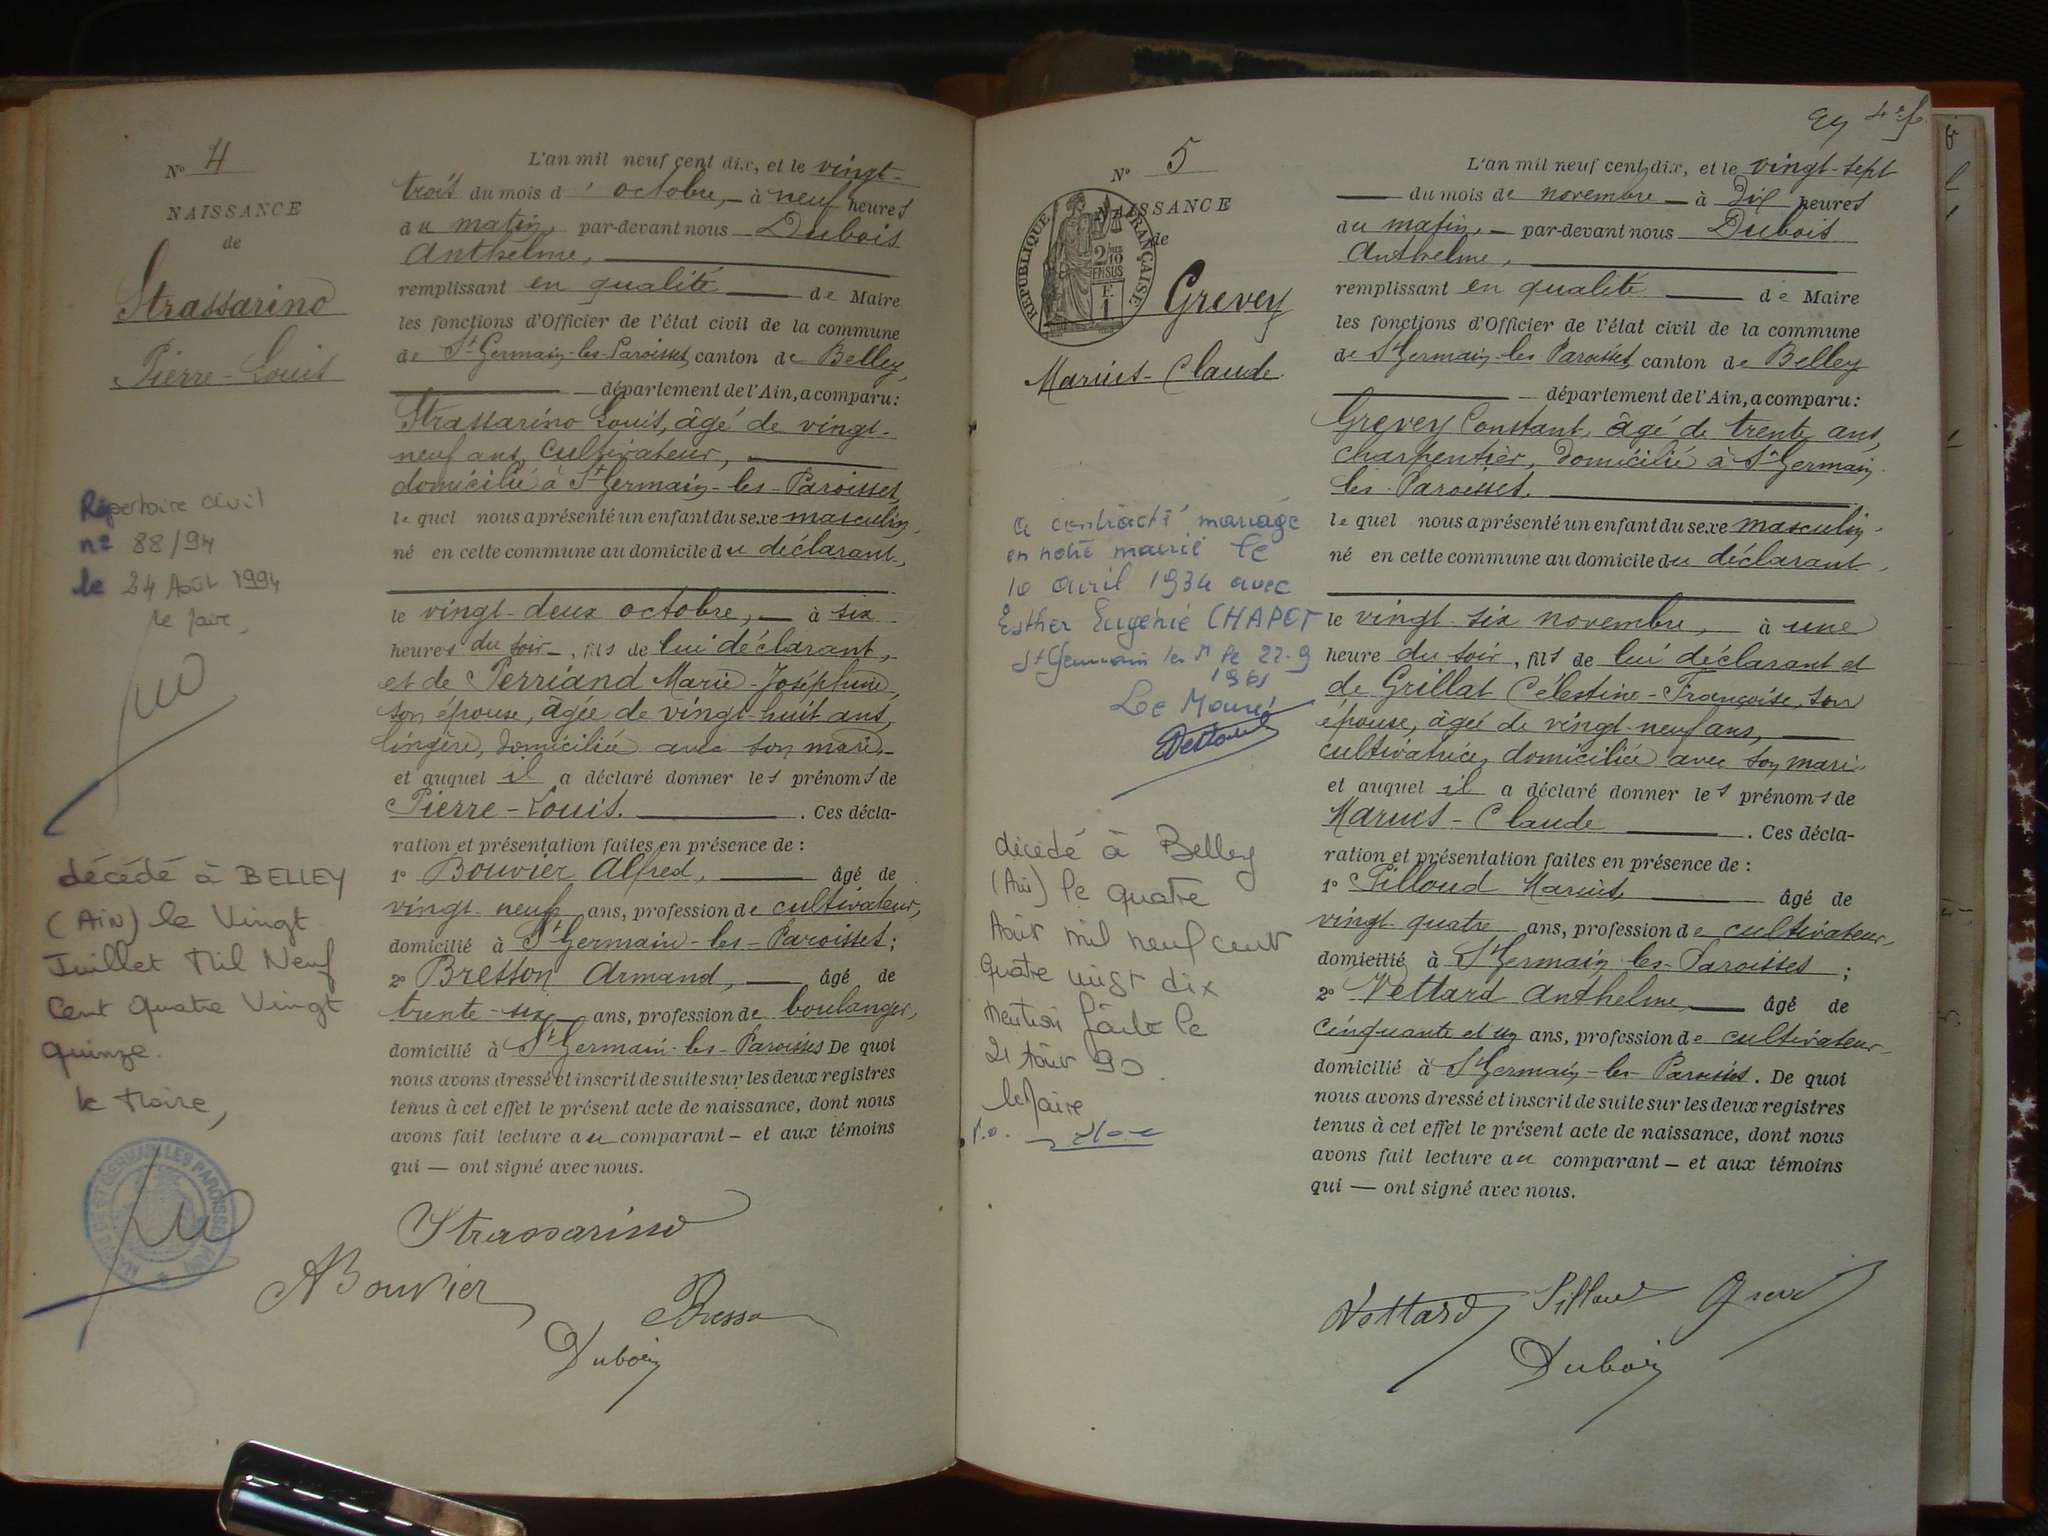 N° 4
NAISSANCE
de
Strassarino
Pierre-Louis
Répertoire civil
n° 88/94
le 24 Août 1994
le Maire,
décédé à BELLEY
(Ain) le Vingt
Juillet Mil Neuf
Cent Quatre Vingt
Quinze.
le Maire,
L'an mil neuf cent dix, et le vingt-
trois du mois d'octobre, — à neuf heures
du matin, par-devant nous Dubois
Anthelme,
remplissant en qualité — de Maire
les fonctions d'Officier de l'état civil de la commune
de St Germain-les-Paroisses, canton de Belley,
— département de l'Ain, a comparu :
Strassarino Louis, âgé de vingt-
neuf ans, cultivateur,
domicilié à St Germain-les-Paroisses,
lequel nous a présenté un enfant du sexe masculin,
né en cette commune au domicile du déclarant,
le vingt-deux octobre, — à six
heures du soir —, fils de lui déclarant,
et de Perriand Marie-Joséphine,
son épouse, âgée de vingt-huit ans,
lingère, domiciliée avec son mari —
et auquel il a déclaré donner les prénoms de
Pierre-Louis. — . Ces décla-
ration et présentation faites en présence de :
1° Bouvier Alfred, — âgé de
vingt-neuf ans, profession de cultivateur,
domicilié à St Germain-les-Paroisses ;
2° Bresson Armand, — âgé de
trente-six ans, profession de boulanger,
domicilié à St Germain-les-Paroisses De quoi
nous avons dressé et inscrit de suite sur les deux registres
tenus à cet effet le présent acte de naissance, dont nous
avons fait lecture au comparant — et aux témoins
qui — ont signé avec nous.
Strassarino
ABouvier
Bresson
Dubois
N° 5
NAISSANCE
de
RÉPUBLIQUE FRANÇAISE
Grevey
Marius-Claude
a contracté mariage
en notre mairie le
10 avril 1934 avec
Esther Eugénie CHAPET
St Germain les P le 27-9
Le Maire
décédé à Belley
(Ain) le quatre
Août mil neuf cent
quatre vingt dix
mention faite le
21 Août 90
le Maire
L'an mil neuf cent dix, et le vingt-sept
— du mois de novembre — à dix heures
du matin, — par-devant nous Dubois
Anthelme,
remplissant en qualité — de Maire
les fonctions d'Officier de l'état civil de la commune
de St Germain-les-Paroisses, canton de Belley
— département de l'Ain, a comparu :
Grevey Constant, âgé de trente ans,
charpentier, domicilié à St Germain-
les-Paroisses,
lequel nous a présenté un enfant du sexe masculin,
né en cette commune au domicile du déclarant,
le vingt-six novembre, — à une
heure du soir, fils de lui déclarant et
de Grillat Célestine-Françoise, son
épouse, âgée de vingt-neuf ans, —
cultivatrice, domiciliée avec son mari
et auquel il a déclaré donner les prénoms de
Marius-Claude — . Ces décla-
ration et présentation faites en présence de :
1° Pilloud Marius, — âgé de
vingt-quatre ans, profession de cultivateur,
domicilié à St Germain-les-Paroisses ;
2° Vettard Anthelme, — âgé de
cinquante et un ans, profession de cultivateur,
domicilié à St Germain-les-Paroisses. De quoi
nous avons dressé et inscrit de suite sur les deux registres
tenus à cet effet le présent acte de naissance, dont nous
avons fait lecture au comparant — et aux témoins
qui — ont signé avec nous.
Vettard
Dubois